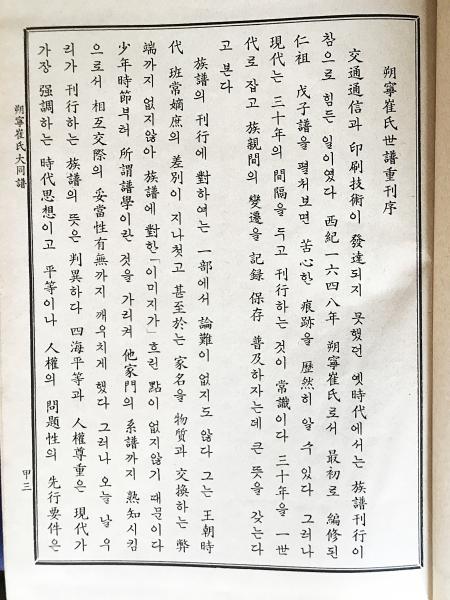 朔寧崔氏世譜重刊序
交通通信과 印刷技術이 發達되지 못했던 옛時代에서는 族譜刊行이
참으로 힘든 일이였다 西紀一六四八年 朔寧崔氏로서 最初로 編修된
仁祖 戊子譜을 펼처보면 苦心한 痕跡을 歷然히 알 수 있다 그러나
現代는 三十年의 間隔을 두고 刊行하는 것이 常識이다 三十年을 一世
代로 잡고 族親間의 變遷을 記録 保存 普及하자는데 큰 뜻을 갖는다
고 본다
族譜의 刊行에 對하여는 一部에서 論難이 없지도 않다 그는 王朝時
代 班常嫡庶의 差別이 지나첫고 甚至於는 家名을 物質과 交換하는 弊
端까지 없지않아 族譜에 對한 「이미지가」 흐린 點이 없지않기 때문이다
少年時節부터 所謂譜學이란 것을 가리켜 他家門의 系譜까지 熟知시킴
으로서 相互交際의 妥當性有無까지 깨우치게 했다 그러나 오늘날 우
리가 刊行하는 族譜의 뜻은 判異하다 四海平等과 人權尊重은 現代가
가장 强調하는 時代思想이고 平等이나 人權의 問題性의 先行要件은
朔寧崔氏大同譜
甲三